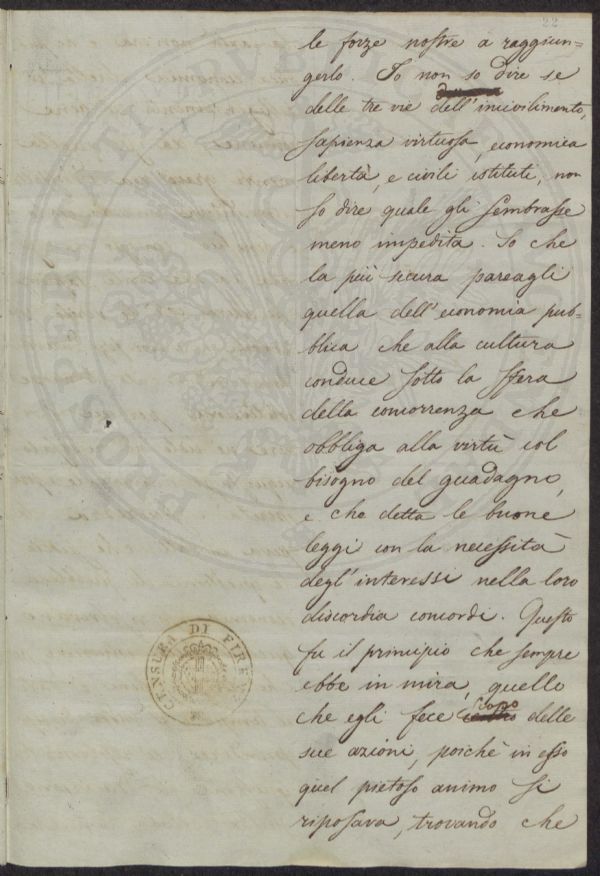 22
le forze nostre a raggiun=
gerlo. Io non so dire se
delle tre vie dell'incivilimento,
sapienza virtuosa, economica
libertà, e civili istituti, non
so dire quale gli sembrasse
meno impedita. So che
la più sicura pareagli
quella dell'economia pub=
blica che alla cultura
conduce sotto la sfera
della concorrenza che
obbliga alla virtù col
bisogno del guadagno,
e che detta le buone
leggi con la necessità
degl'interessi nella loro
discordia concordi. Questo
fu il principio che sempre
ebbe in mira, quello
che egli fece scopo delle
sue azioni, poichè in esso
quel pietoso animo si
riposava, trovando che
CENSURA DI FIRENZE